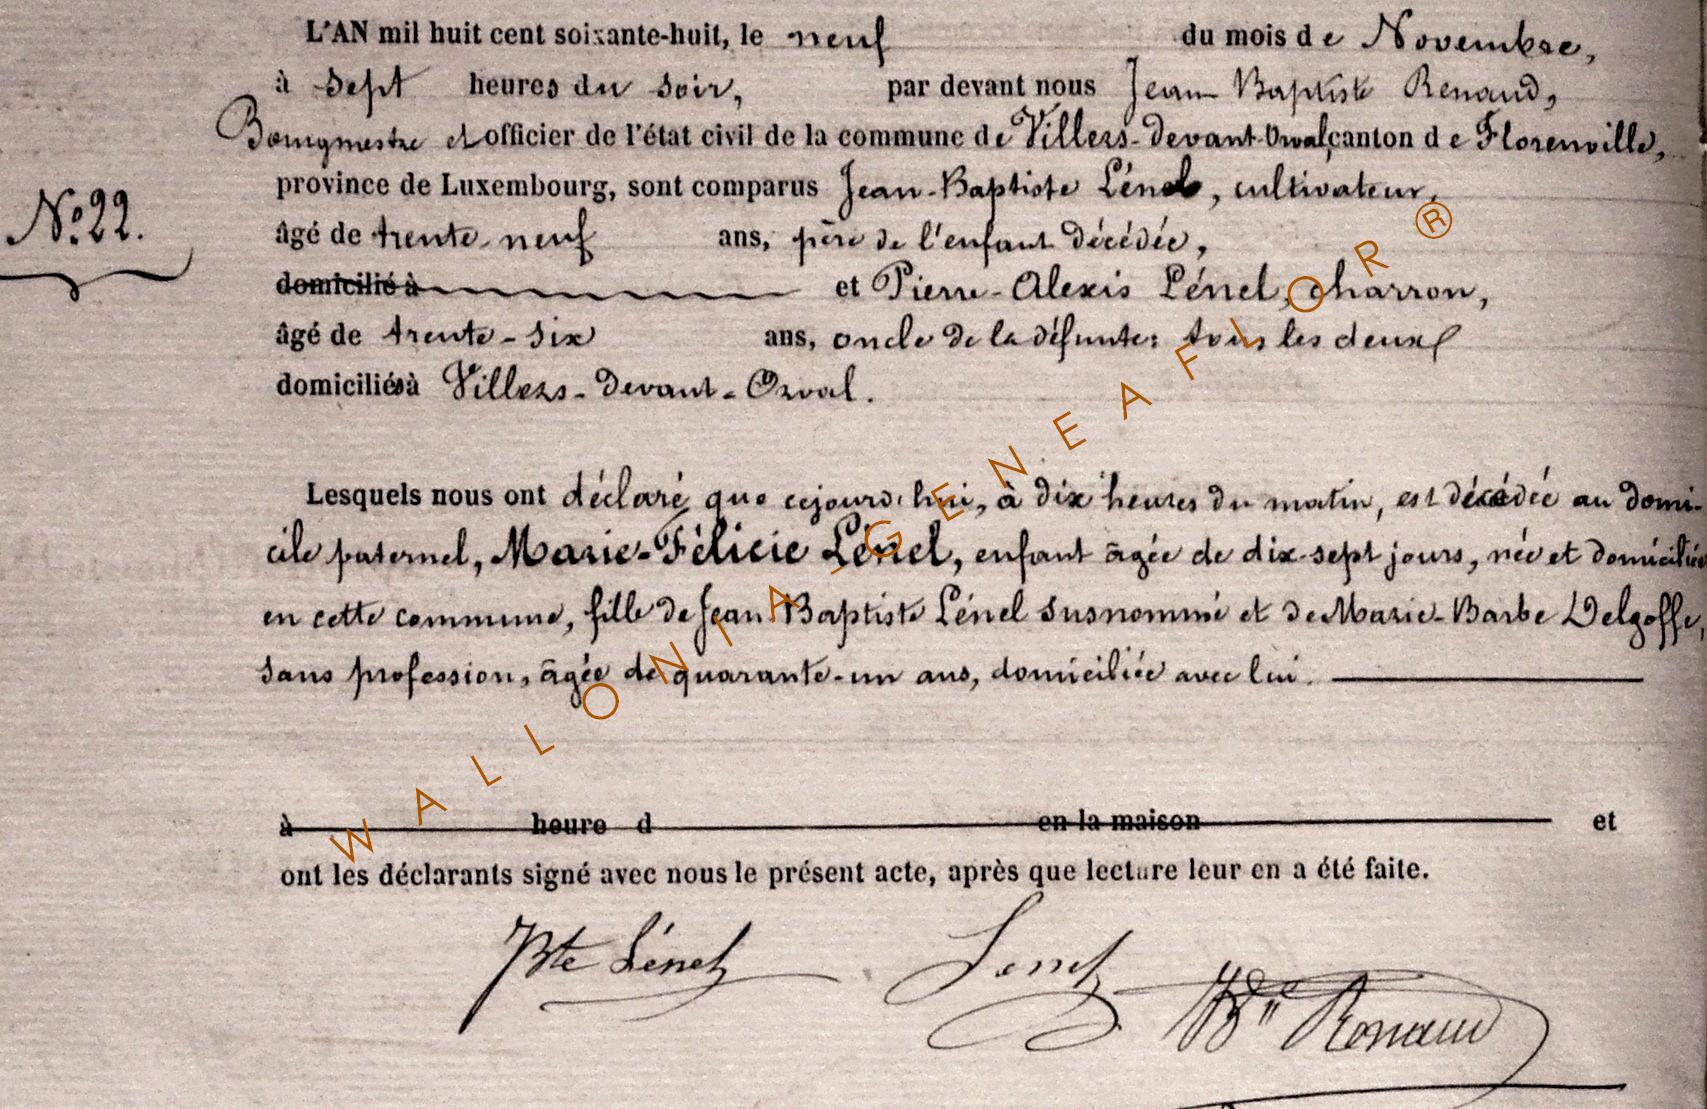 L'AN mil huit cent soixante-huit, le neuf du mois de Novembre,
à sept heures du soir, par devant nous Jean Baptiste Renaud,
Bourgmestre et officier de l'état civil de la commune de Villers-devant-Orval, canton de Florenville,
province de Luxembourg, sont comparus Jean-Baptiste Lénel, cultivateur,
N.º 22.
âgé de trente-neuf ans, père de l'enfant décédée,
domicilié à et Pierre-Alexis Lénel, charron,
âgé de trente-six ans, oncle de la défunte; tous les deux
domiciliés à Villers-devant-Orval.
Lesquels nous ont déclaré que cejourd'hui, à dix heures du matin, est décédée au domi-
cile paternel, Marie-Félicie Lénel, enfant âgée de dix-sept jours, née et domiciliée
en cette commune, fille de Jean Baptiste Lénel susnommé et de Marie-Barbe Delgoffe,
sans profession, âgée de quarante-un ans, domiciliée avec lui.
à heure d en la maison et
ont les déclarants signé avec nous le présent acte, après que lecture leur en a été faite.
JBte Lénel Lenel JBte Renaud
WALLONIA-GENEAFLOR®